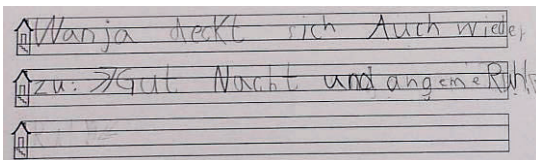 Wanja deckt sich Auch wieder
zu: »Gut Nacht und angeme Ruhh